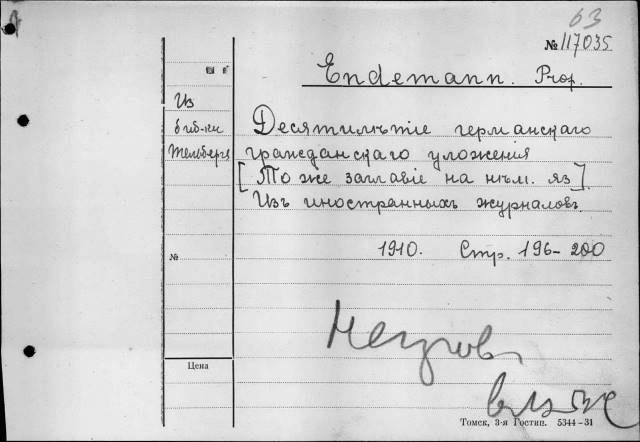 63
№ 117035
Endemann. Prof.
Из
биб-ки
Тельберга
Десятилѣтіе германскаго
гражданскаго уложенія
[То же заглавіе на нѣм. яз.]
Изъ иностранныхъ журналовъ.
1910. Стр. 196-200
№
Цена
Томск, 3-я Гостип. 5344-31